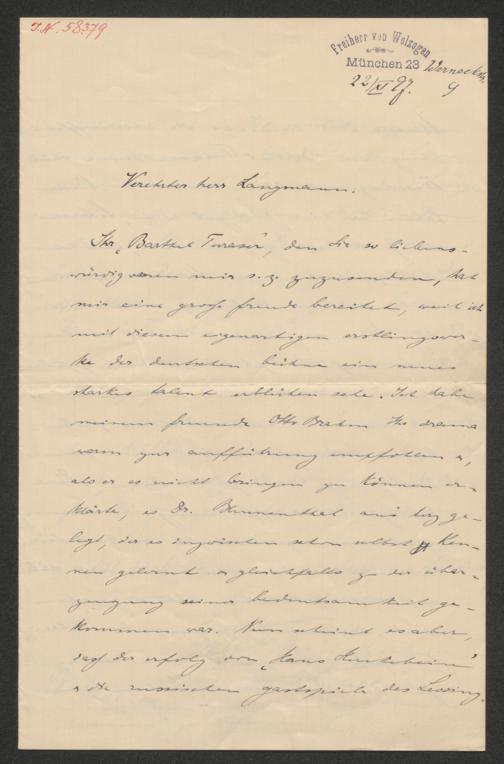 J.N. 58379
Freiherr von Wolzogen
München 23 Werneckstr.
22/XI 97. 9
Verehrter herr Langmann.
Ihr „Barthel Turaser“, den Sie so liebens-
würdig waren mir s. z. zuzusenden, hat
mir eine große freude bereitet, weil ich
mit diesem eigenartigen erstlingswer-
ke der deutschen bühne ein neues
starkes talent erblühen sehe. Ich habe
meinem freunde Otto Brahm Ihr drama
warm zur aufführung empfohlen u,
als er es nicht bringen zu können er-
klärte, es Dr. Blumenthal ans herz ge-
legt, der es inzwischen schon selbst ken-
nen gelernt u gleichfalls zu der über-
zeugung seiner bedeutsamkeit ge-
kommen war. Nun scheint es aber,
daß der erfolg von „Hans Huckebein“
u die russischen gastspiele des Lessing-